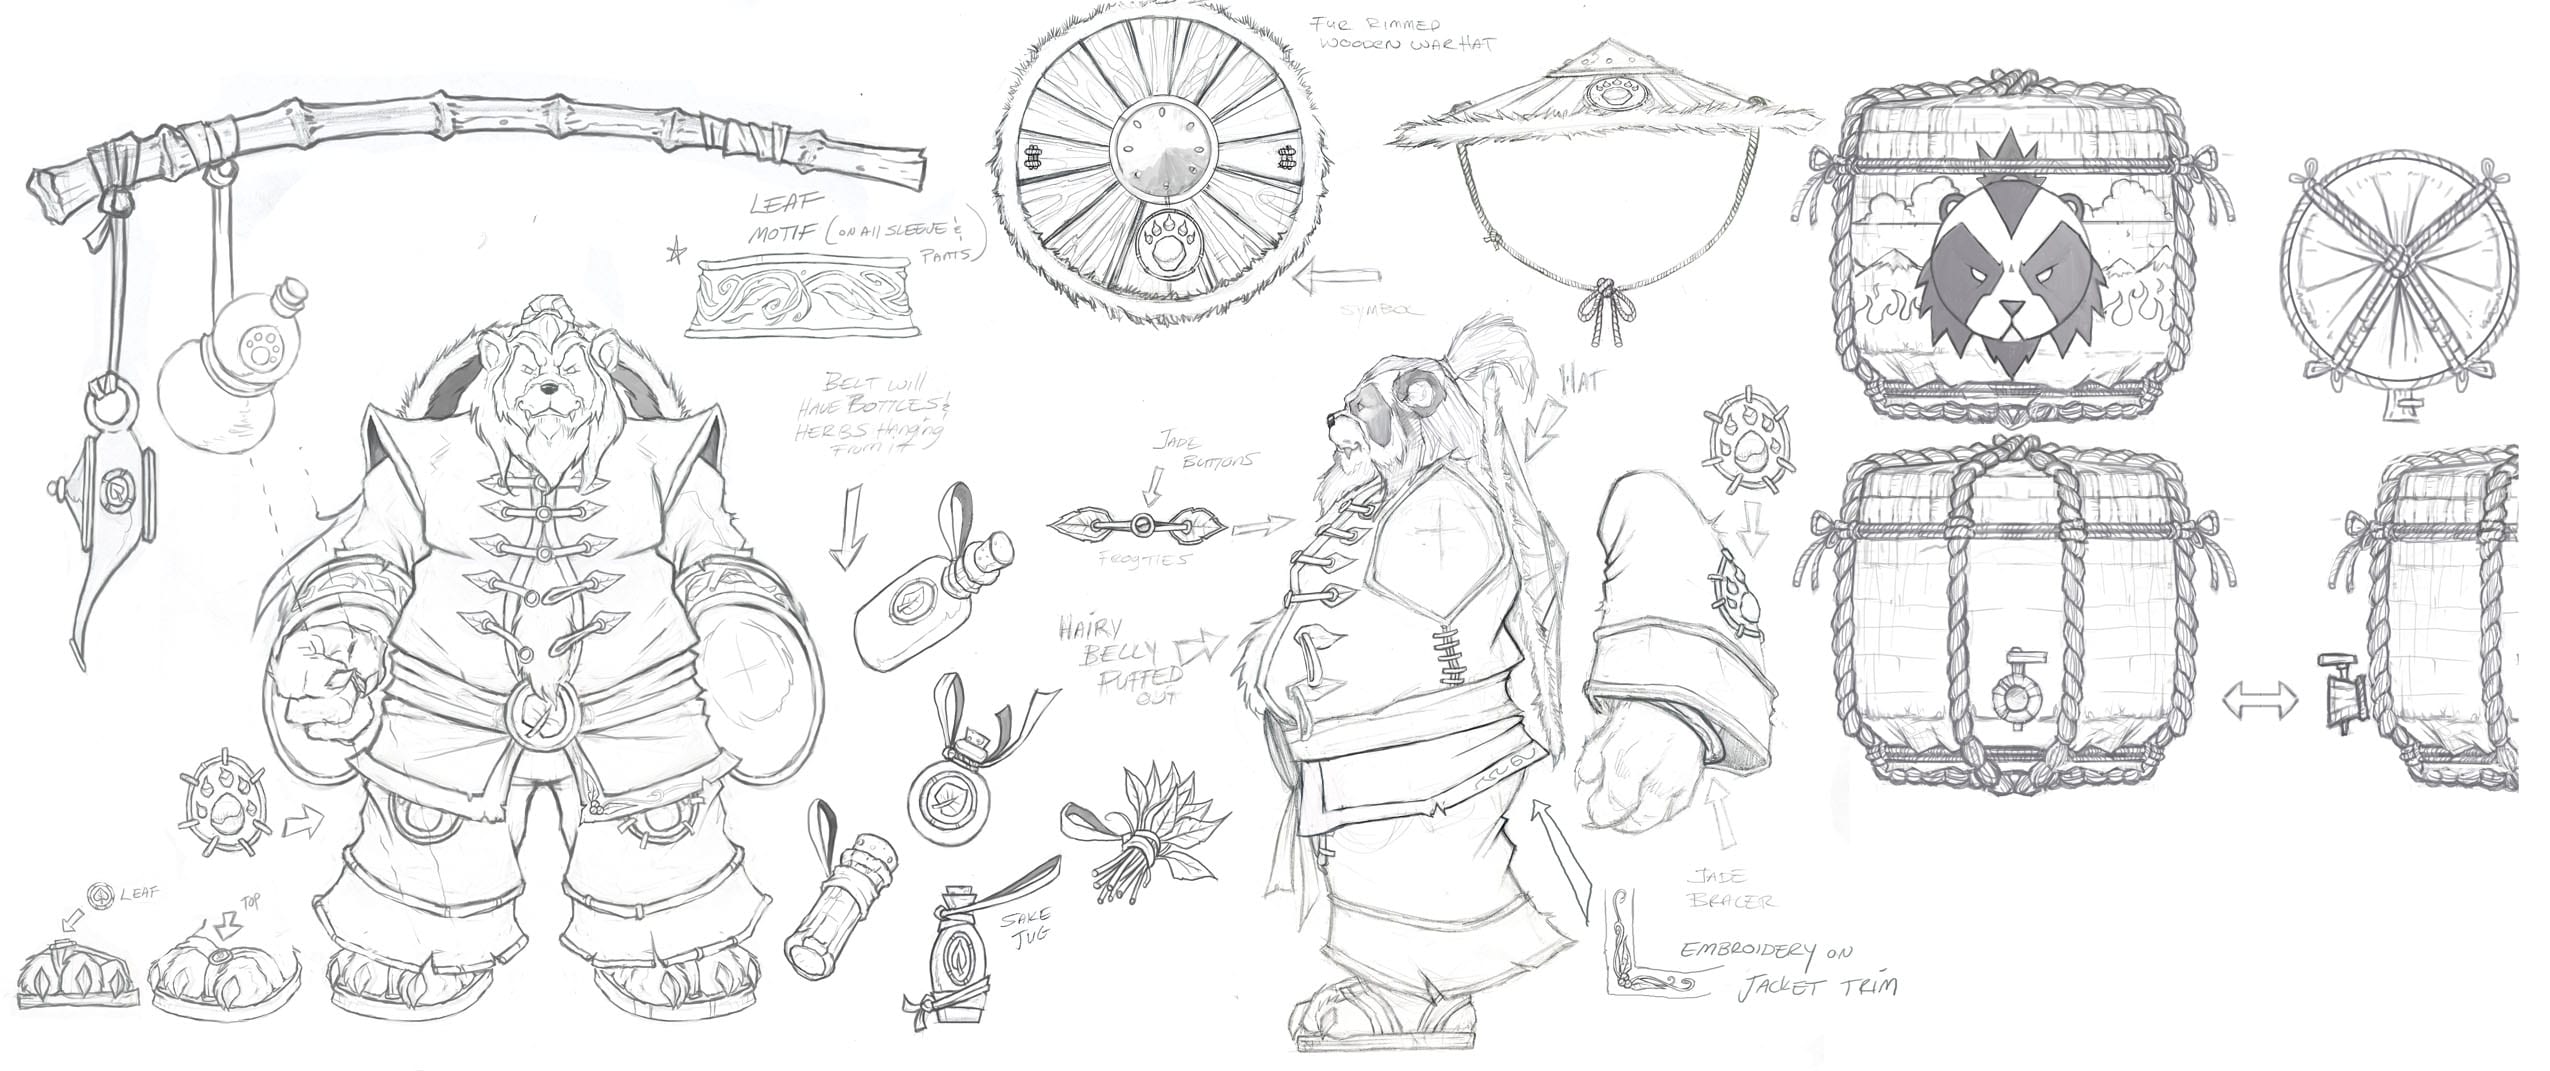 FUR RIMMED
WOODEN WAR HAT
LEAF
MOTIF (ON ALL SLEEVE &
PANTS)
SYMBOL
BELT WILL
HAVE BOTTLES &
HERBS HANGING
FROM IT
HAT
JADE
BUTTONS
FROG TIES
HAIRY
BELLY
PUFFED
OUT
LEAF
TOP
SAKE
JUG
JADE
BRACER
EMBROIDERY ON
JACKET TRIM